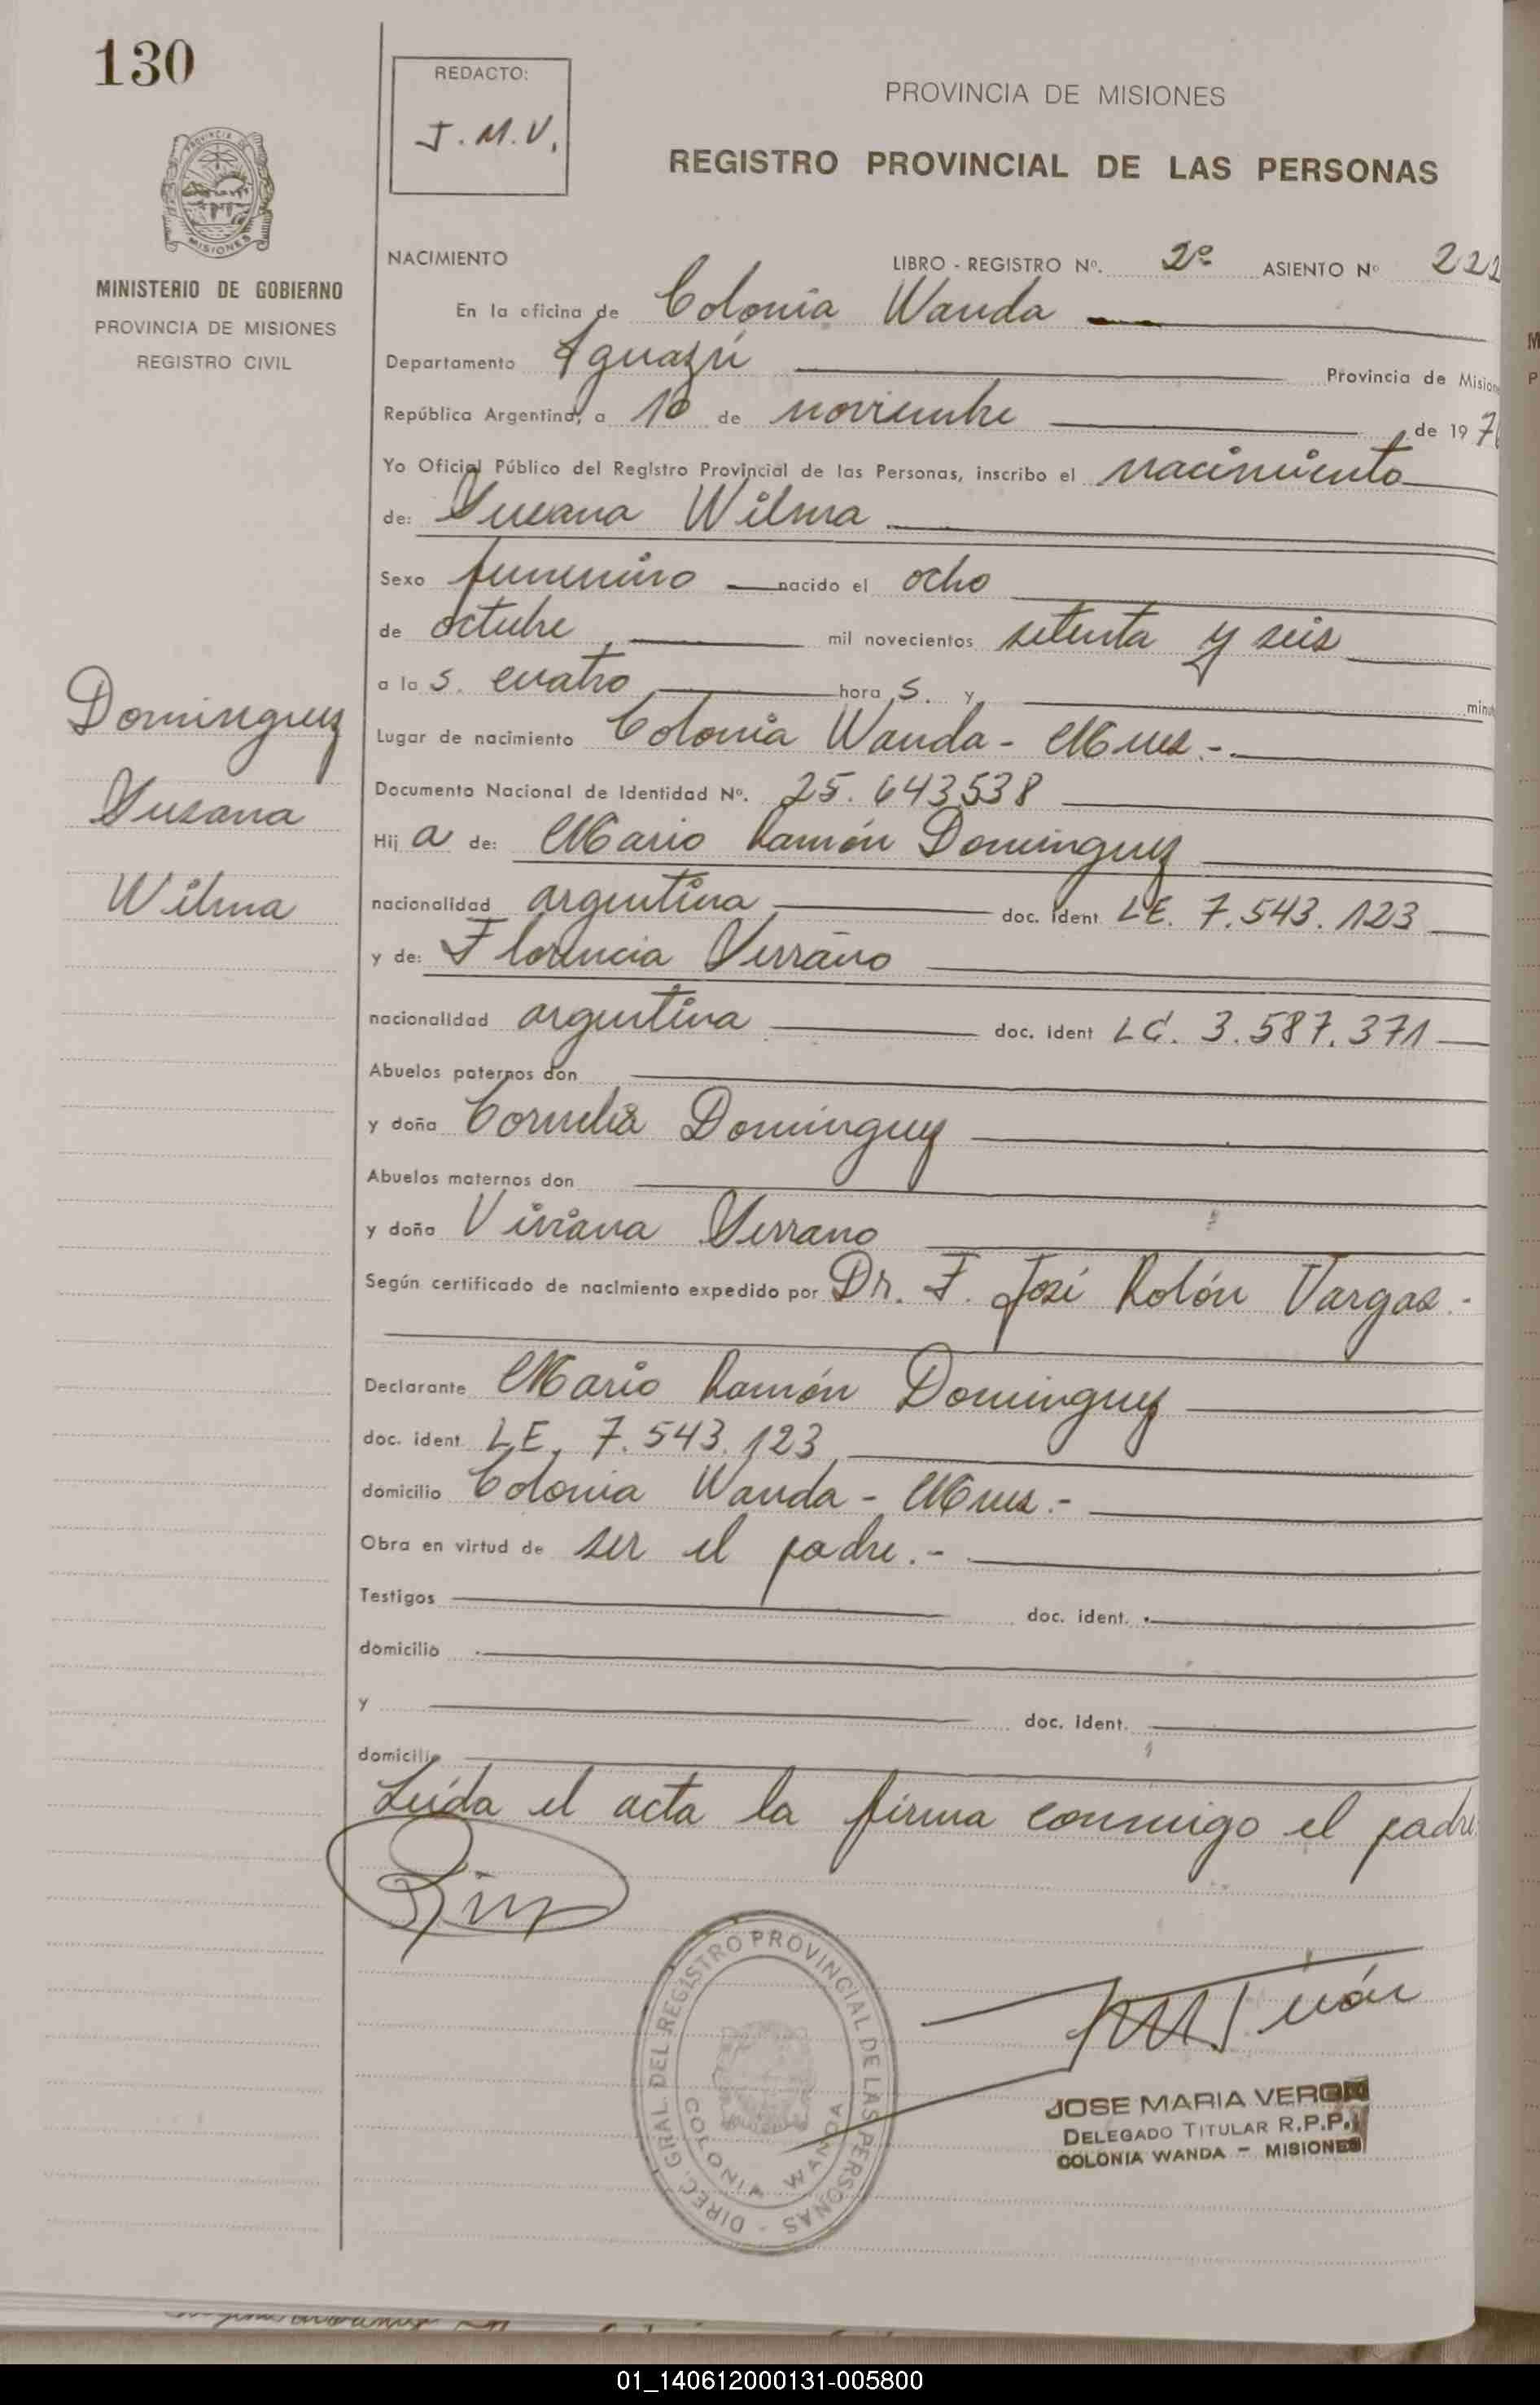 130
REDACTO:
J.M.V.
PROVINCIA DE MISIONES
REGISTRO PROVINCIAL DE LAS PERSONAS
MINISTERIO DE GOBIERNO
PROVINCIA DE MISIONES
REGISTRO CIVIL
NACIMIENTO LIBRO - REGISTRO Nº. 2º ASIENTO Nº 222
En la oficina de Colonia Wanda
Departamento Iguazú Provincia de Misiones
República Argentina, a 10 de noviembre de 197
Yo Oficial Público del Registro Provincial de las Personas, inscribo el nacimiento
de: Susana Wilma
Sexo femenino nacido el ocho
de octubre mil novecientos setenta y seis
a la s. cuatro hora s. y minut
Lugar de nacimiento Colonia Wanda - Mnes.-
Documento Nacional de Identidad Nº. 25.643538
Hij a de: Mario Ramón Dominguez
nacionalidad argentina doc. ident LE. 7.543.123
y de: Florencia Serrano
nacionalidad argentina doc. ident LC. 3.587.371
Abuelos paternos don
y doña Cornelia Dominguez
Abuelos maternos don
y doña Viviana Serrano
Según certificado de nacimiento expedido por Dr. F. José Rolón Vargas.-
Declarante Mario Ramón Dominguez
doc. ident LE. 7.543.123
domicilio Colonia Wanda - Mnes.-
Obra en virtud de ser el padre.-
Testigos doc. ident.
domicilio
y doc. ident.
domicilio
Leída el acta la firma conmigo el padre
Dominguez
Susana
Wilma
DIREC. GRAL. DEL REGISTRO PROVINCIAL DE LAS PERSONAS -
COLONIA WANDA
JOSE MARIA VERON
DELEGADO TITULAR R.P.P.
COLONIA WANDA - MISIONES
01_140612000131-005800